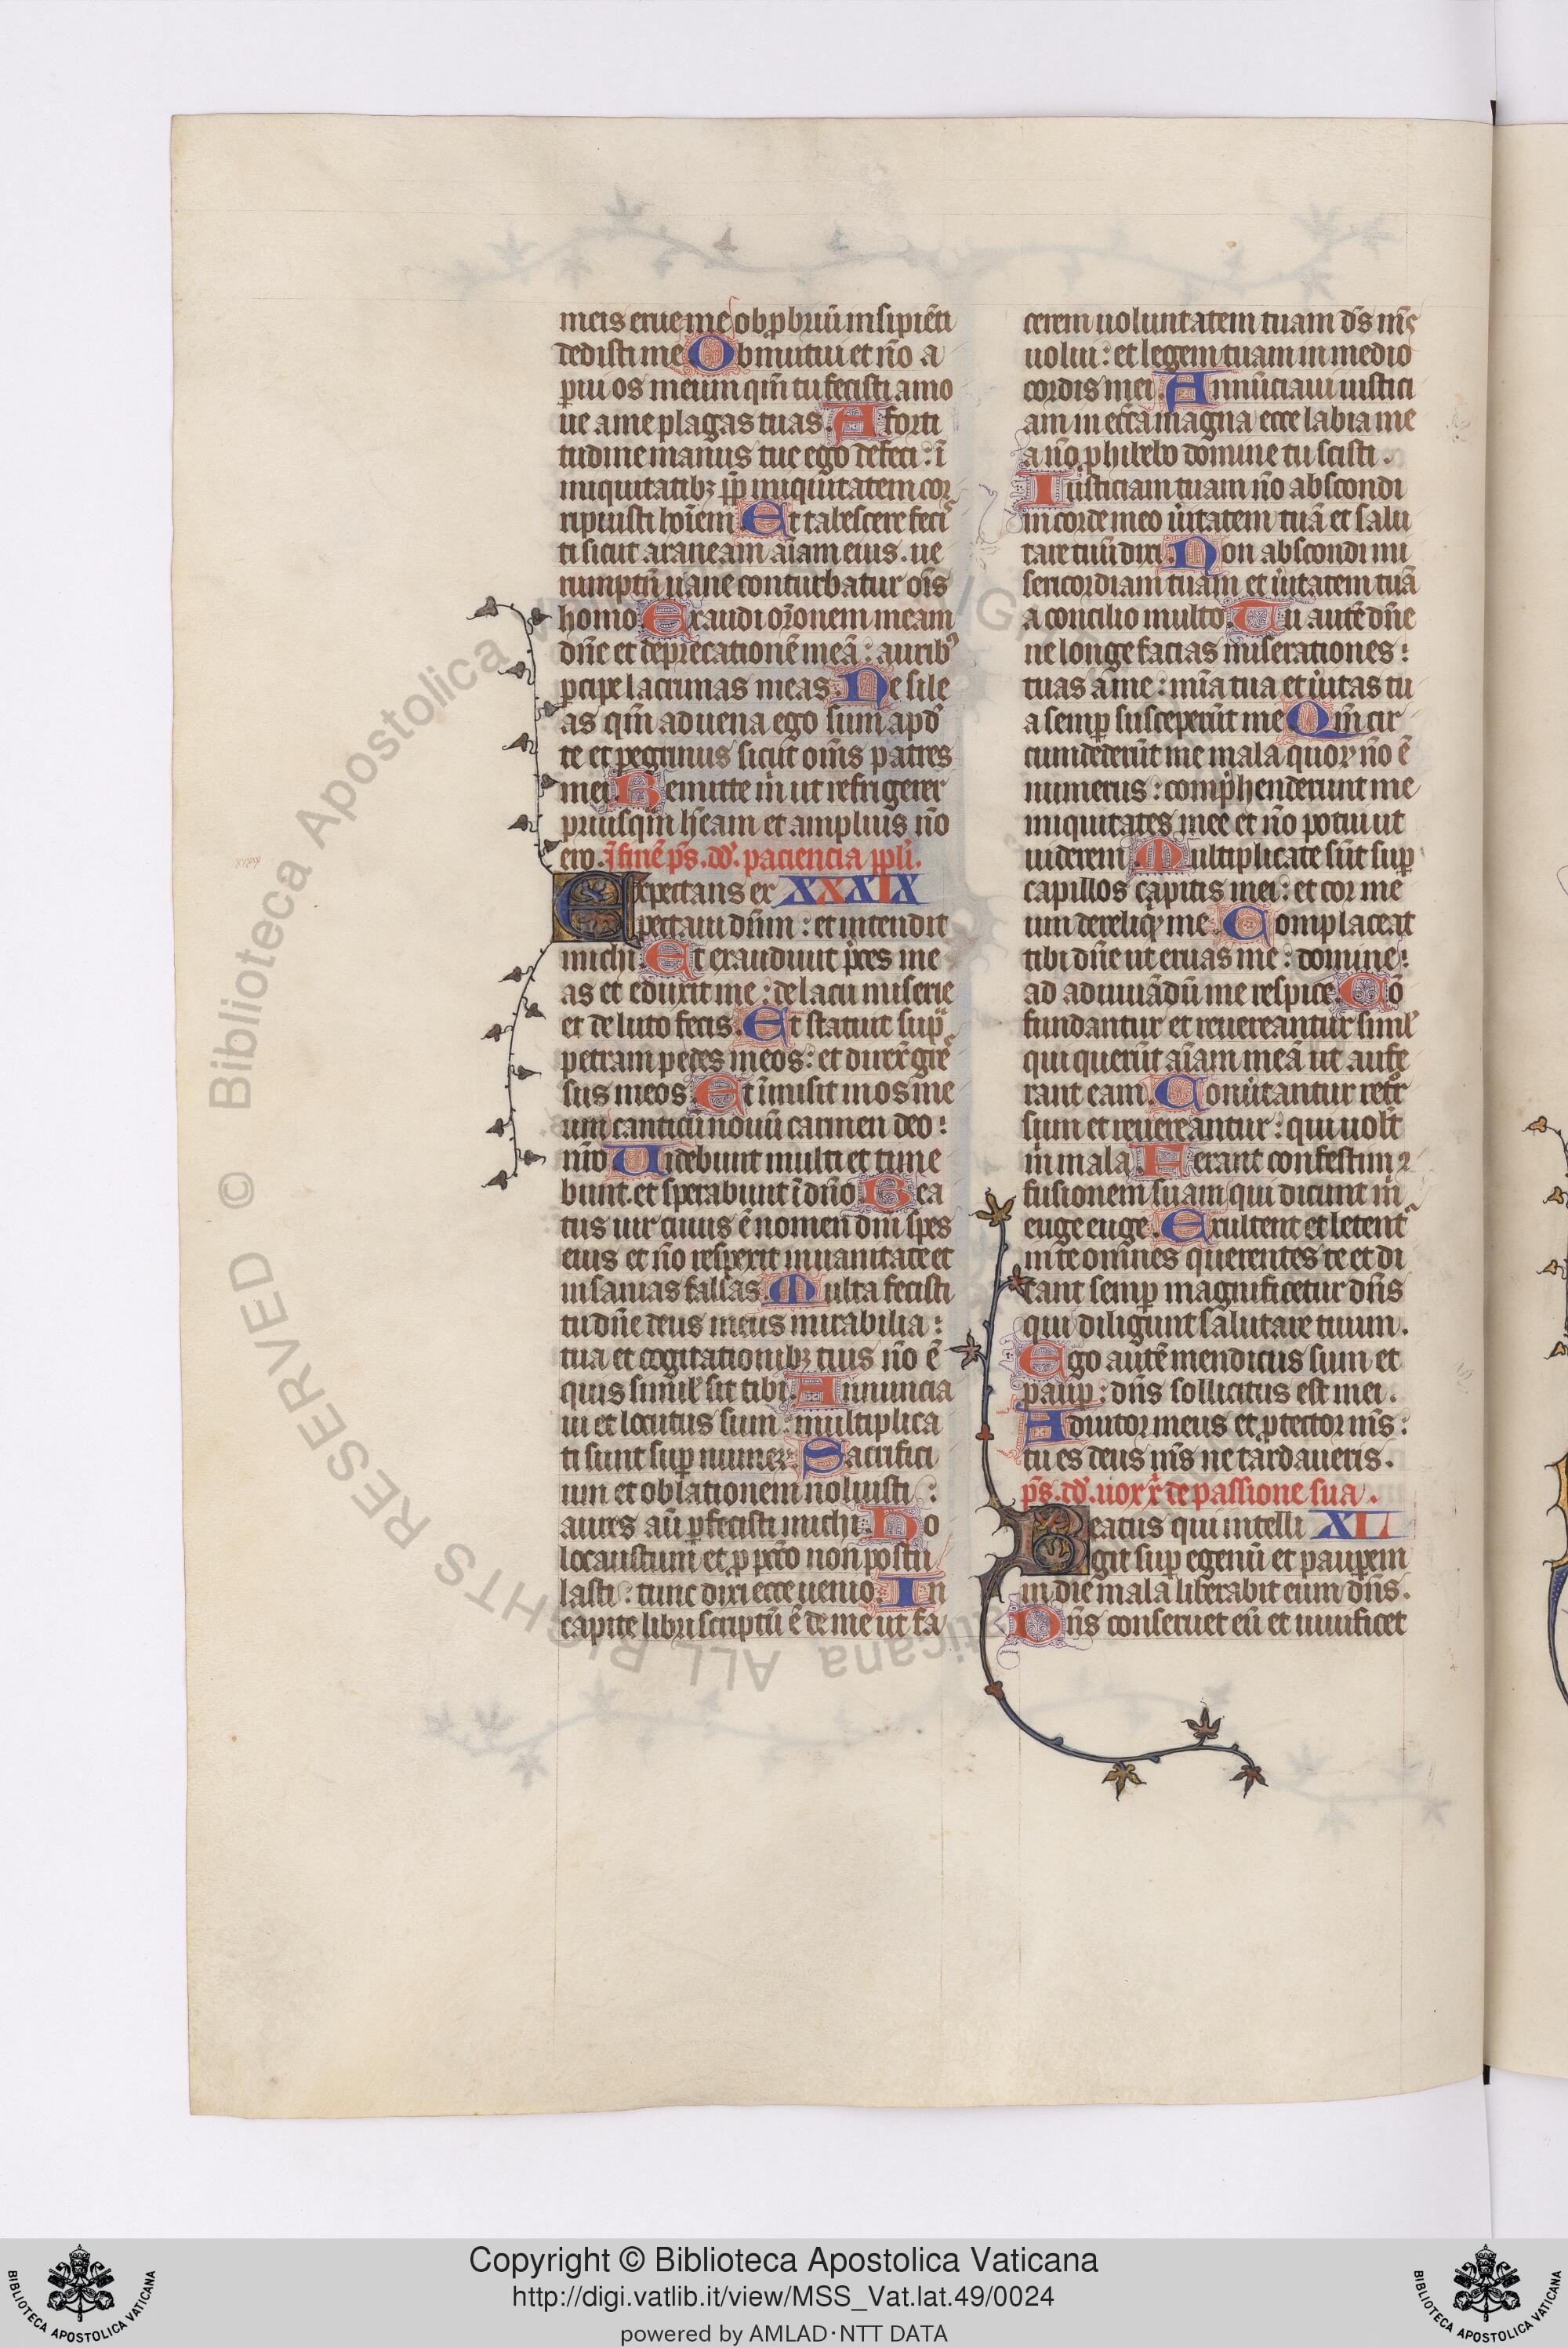 meis erue me obp̱briũ insipiẽti
dedisti me Obmutui et nõ a
perui os meum qm̃ tu fecisti amo
ue a me plagas tuas. A forti
tudine manus tue ego defeci: ĩ
iniquitatibꝫ ꝓp̃ iniquitatem cor
ripuisti hoĩem Et tabescere feci
ti sicut araneam aĩam eius. ue
rumptñ uane conturbatur oĩs
homo Exaudi orõonem meam
dñe et deprecationẽ meã: auribꝰ
ꝑcipe lacrimas meas. Ne sile
as qm̃ aduena ego sum apđ
te et ꝑegrinus sicut om̃s patres
mei. Remitte m̃ ut refrigerer
priusqm̃ h̃eam et amplius nõ
ero. J finẽ p̃s. dđ. paciencia ppl̃i.
Expectans ex XXXIX
pectaui dñm: et intendit
michi. Et exaudiuit p̃ces me
as et eduxit me: de lacu miserie
et de luto fecis. Et statuit supᵃ
petram pedes meos: et direx̃ gr̃e
sus meos. Et ĩmisit in os me
um canticũ nouũ carmen deo:
nr̃o Uidebunt multi et time
bunt. et sperabunt ĩ dño Bea
tus uir cuius ẽ nomen dñi spes
eius et nõ respexit in uanitate et
insanias falsas. Multa fecisti
tu dñe deus meus mirabilia:
tua et cogitationibꝫ tuis nõ ẽ
quis simil̃ sit tibi. Annuncia
ui et locutus sum: multiplica
ti sunt sup̱ numer̃. Sacrifici
um et oblationem noluisti:
aures aũ ꝑfecisti michi. Ho
locaustum et ꝓ pc̃c̃o non postu
lasti: tunc dixi ecce uenio. In
capite libri scriptũ ẽ de me ut fa
cerem uoluntatem tuam d̃s m̃s
uolui: et legem tuam in medio
cordis mei. Annũciaui iustici
am in ecc̃a magna ecce labia me
a nõ ꝓhibebo domine tu scisti.
Iusticiam tuam nõ abscondi
in corde meo ũitatem tuã et salu
tare tuũ dixi. Non abscondi mi
sericordiam tuam et ũitatem tuã
a concilio multo Tu autẽ dñe
ne longe facias miserationes:
tuas a me: mĩa tua et ũitas tu
a semꝑ susceperũt me Qm̃ cir
cumdederũt me mala quoꝝ nõ ẽ
numerus: comp̃henderunt me
iniquitates mee et nõ potui ut
uiderem Multiplicate sũt sup̱
capillos capitis mei: et cor me
um dereliq̃ me. Complaceat
tibi dñe ut eruas me: domine:
ad adiuuãdũ me respice. Cõ
fundantur et reuereantur simil̃
qui querũt aĩam meã ut aufe
rant eam. Conũtantur retr̃
sum et reuereantur: qui uolũt
m̃ mala. Ferant confestim ꝯ
fusionem suam qui dicunt m̃
euge euge. Exultent et letent̃
in te omnes querentes te et di
cant semꝑ magnificetur dñs
qui diligunt salutare tuum.
Ego autẽ mendicus sum et
pauꝑ: dñs sollicitus est mei.
Adiutor meus et ꝓtector m̃s:
tu es deus m̃s ne tardaueris.
p̃s. dđ. uox xp̃i de passione sua.
Beatus qui intelli XL
git sup̱ egenũ et pauꝑem
in die mala liberabit eum dñs.
Dñs conseruet eũ et uiuificet
© Biblioteca Apostolica Vaticana ALL RIGHTS RESERVED
Copyright © Biblioteca Apostolica Vaticana
http://digi.vatlib.it/view/MSS_Vat.lat.49/0024
powered by AMLAD·NTT DATA
BIBLIOTECA APOSTOLICA VATICANA
BIBLIOTECA APOSTOLICA VATICANA